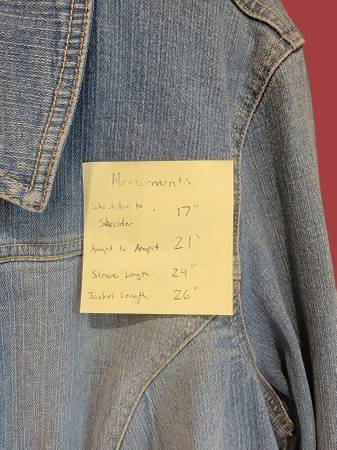 Mensurments
Shoulder to : 17"
Shoulder
Armpit to Armpit : 21"
Sleeve Length : 24"
Jacket Length : 26"